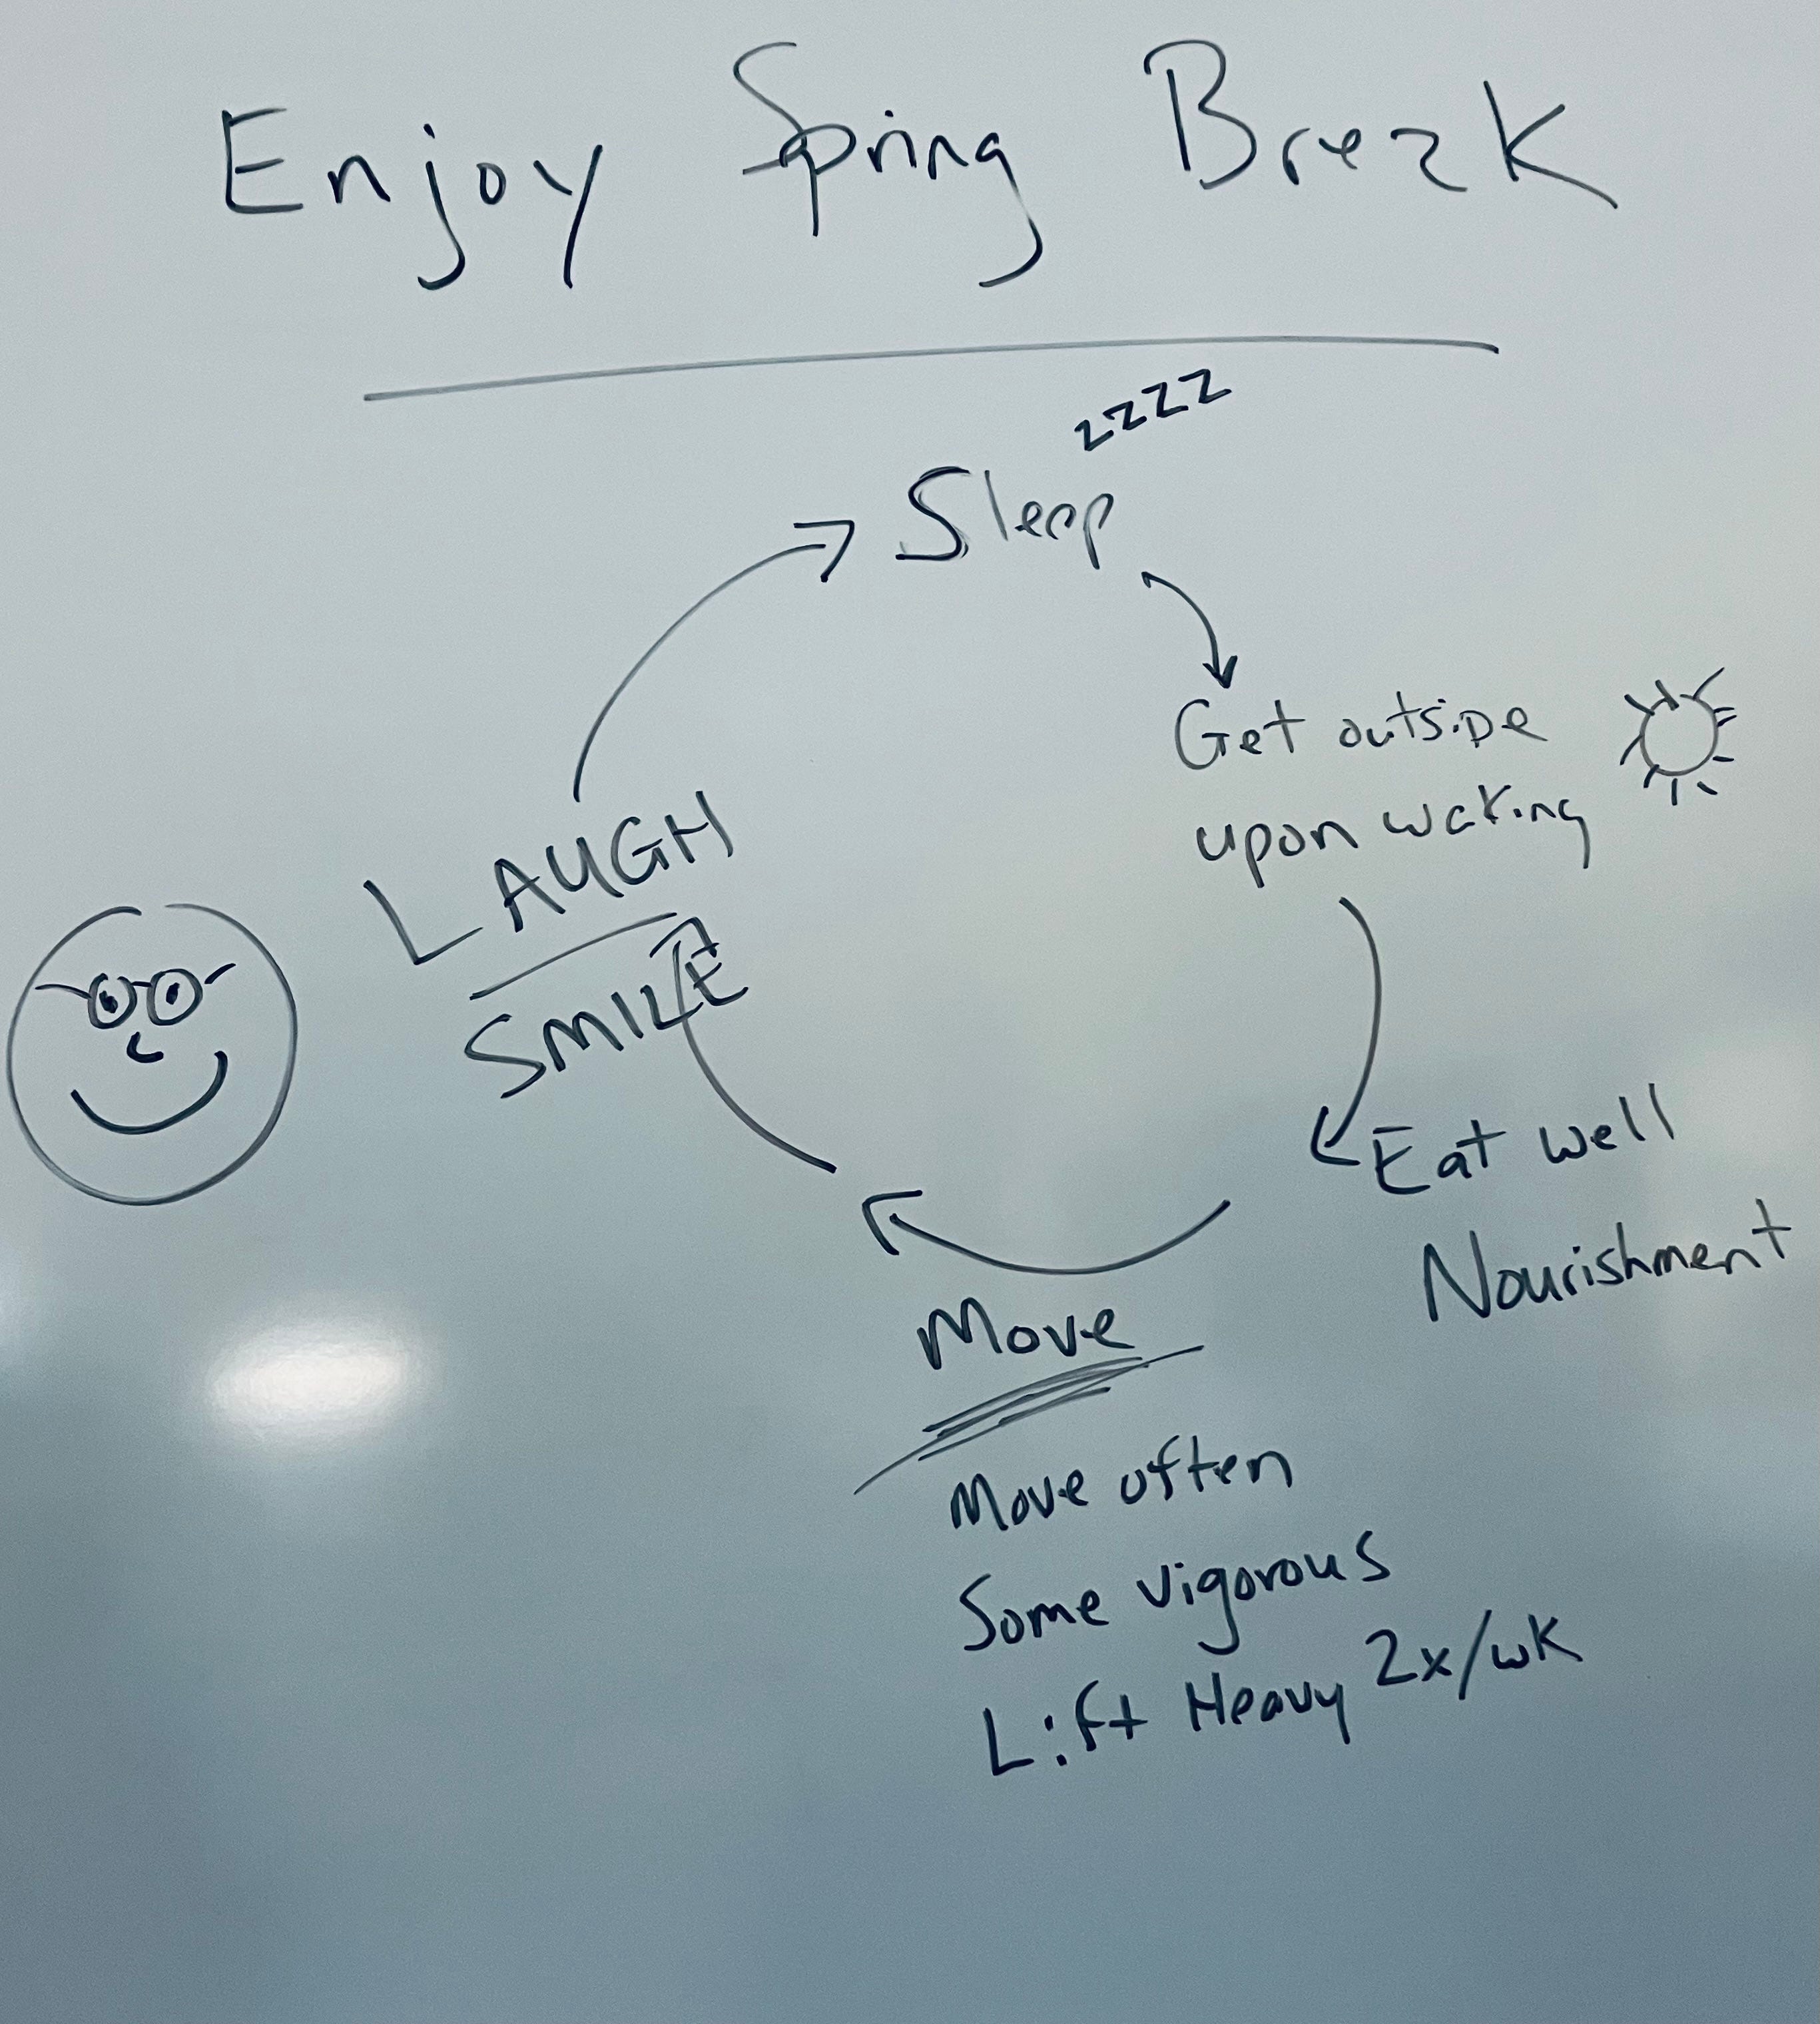 Enjoy Spring Break
zzzz
Sleep
Get outside
upon waking
Eat well
Nourishment
Move
Move often
Some vigorous
Lift Heavy 2x/wk
LAUGH
SMILE